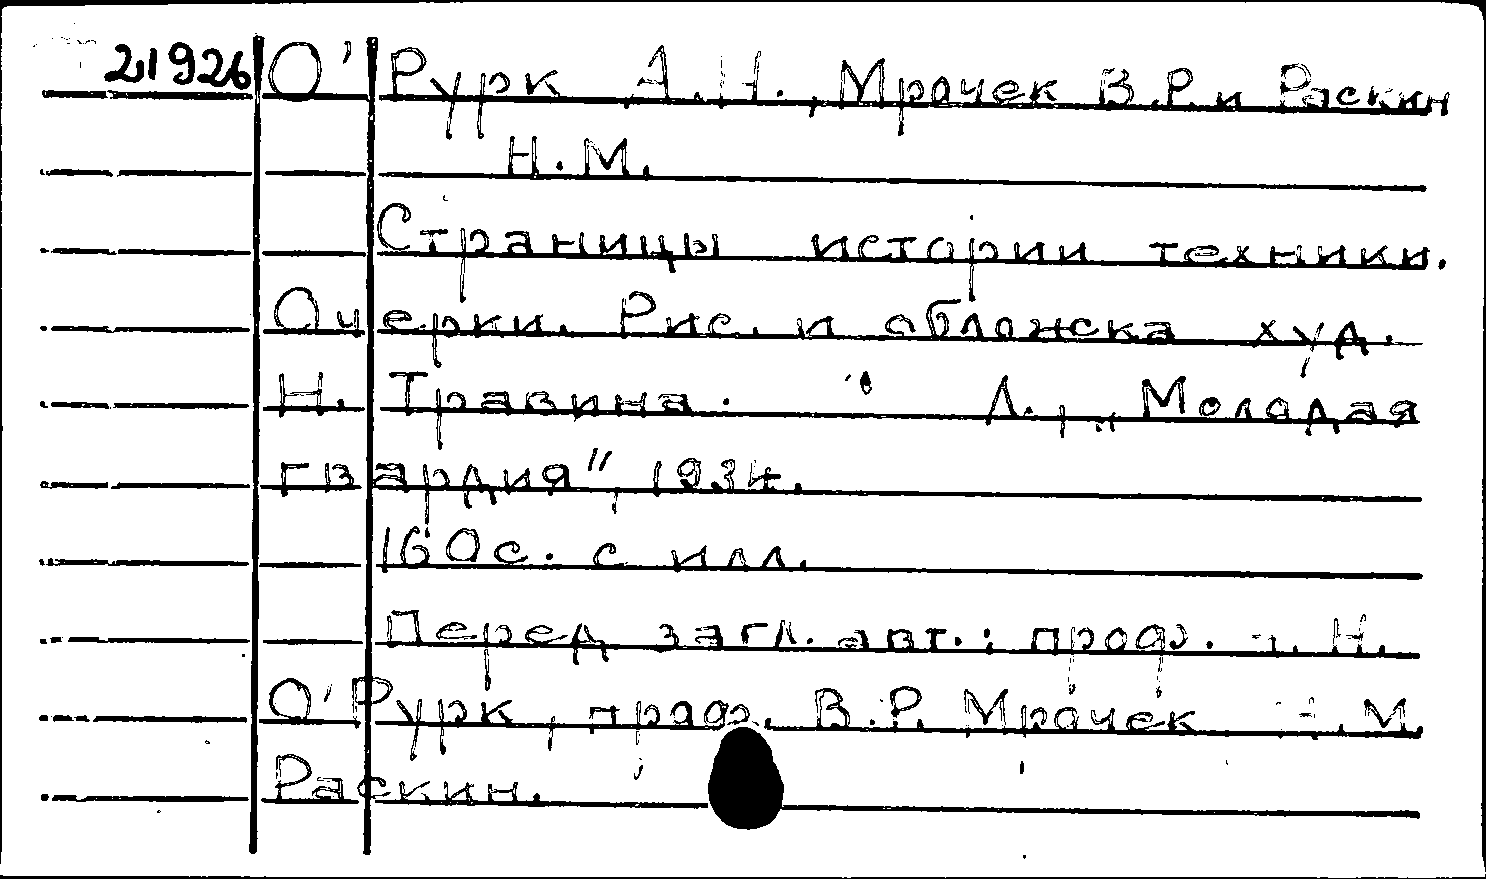 21926 О'Рурк А.Н., Мрачек В.Р. и Раскин
Н.М.
Страницы истории техники.
Очерки. Рис. и обложка худ.
Н. Травина. Л., „Молодая
гвардия", 1934.
160с. с илл.
Перед загл. авт.: проф. Н.
О'Рурк, проф. В.Р. Мрачек М.
Раскин.